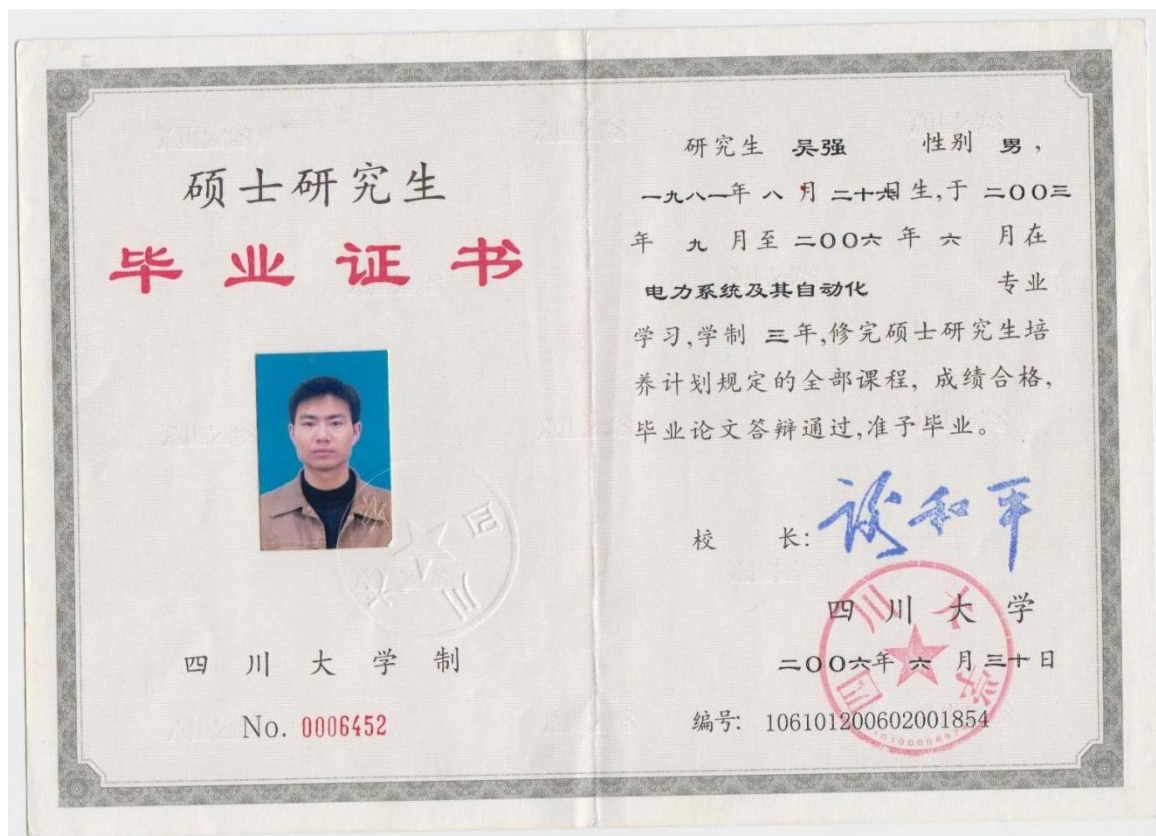 硕士研究生
毕业证书
四川大学制
No. 0006452
研究生 吴强 性别 男，
一九八一年 八 月 二十六日生,于 二〇〇三
年 九 月至 二〇〇六 年 六 月在
电力系统及其自动化 专业
学习,学制 三年,修完硕士研究生培
养计划规定的全部课程, 成绩合格,
毕业论文答辩通过,准予毕业。
校 长: 谈和平
四川大学
二〇〇六年 六 月 三十日
编号: 106101200602001854
四川大学
四川大学